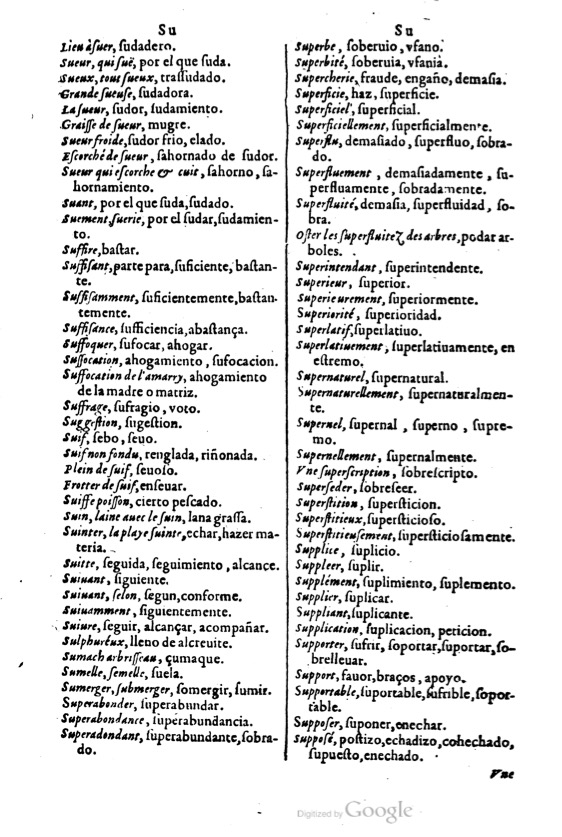 Su
Lieu à ſuer, ſudadero.
Sueur, qui ſuë, por el que ſuda.
Sueux, tout ſueux, traſſudado.
Grande ſueuſe, ſudadora.
La ſueur, ſudor, ſudamiento.
Graiſſe de ſueur, mugre.
Sueur froide, ſudor frio, elado.
Eſcorché de ſueur, ſahornado de ſudor.
Sueur qui eſcorche & cuit, ſahorno, ſa-
hornamiento.
Suant, por el que ſuda, ſudado.
Suement, ſuerie, por el ſudar, ſudamien-
to.
Suffire, baſtar.
Suffiſant, parte para, ſuficiente, baſtan-
te.
Suffiſamment, ſuficientemente, baſtan-
temente.
Suffiſance, ſufficiencia, abaſtança.
Suffoquer, ſufocar, ahogar.
Suffocation, ahogamiento, ſufocacion.
Suffocation de l'amarry, ahogamiento
de la madre o matriz.
Suffrage, ſufragio, voto.
Suggeſtion, ſugeſtion.
Suif, ſebo, ſeuo.
Suif non fondu, renglada, riñonada.
Plein de ſuif, ſeuoſo.
Frotter de ſuif, enſeuar.
Suiffe poiſſon, cierto peſcado.
Suin, laine auec le ſuin, lana graſſa.
Suinter, la playe ſuinte, echar, hazer ma-
teria.
Suitte, ſeguida, ſeguimiento, alcance.
Suiuant, ſiguiente.
Suiuant, ſelon, ſegun, conforme.
Suiuamment, ſiguientemente.
Suiure, ſeguir, alcançar, acompañar.
Sulphuréux, lleno de alcreuite.
Sumach arbriſſeau, çumaque.
Sumelle, ſemelle, ſuela.
Sumerger, ſubmerger, ſomergir, ſumir.
Superabonder, ſuperabundar.
Superabondance, ſuperabundancia.
Superadondant, ſuperabundante, ſobra-
do.
Su
Superbe, ſoberuio, vfano.
Superbité, ſoberuia, vfania.
Supercherie, fraude, engaño, demaſia.
Superficie, haz, ſuperficie.
Superficiel, ſuperficial.
Superficiellement, ſuperficialmente.
Superflu, demaſiado, ſuperfluo, ſobra-
do.
Superfluement, demaſiadamente, ſu-
perfluamente, ſobradamente.
Superfluité, demaſia, ſuperfluidad, ſo-
bra.
Oſter les ſuperfluitez des arbres, podar ar-
boles.
Superintendant, ſuperintendente.
Superieur, ſuperior.
Superieurement, ſuperiormente.
Superiorité, ſuperioridad.
Superlatif, ſuperlatiuo.
Superlatiuement, ſuperlatiuamente, en
eſtremo.
Supernaturel, ſupernatural.
Supernaturellement, ſupernaturalmen-
te.
Supernel, ſupernal, ſuperno, ſupre-
mo.
Supernellement, ſupernalmente.
Vne ſuperſcription, ſobreſcripto.
Superſeder, ſobreſeer.
Superſtition, ſuperſticion.
Superſtitieux, ſuperſticioſo.
Superſtitieuſement, ſuperſticioſamente.
Supplice, ſuplicio.
Suppleer, ſuplir.
Supplément, ſuplimiento, ſuplemento.
Supplier, ſuplicar.
Suppliant, ſuplicante.
Supplication, ſuplicacion, peticion.
Supporter, ſufrir, ſoportar, ſuportar, ſo-
brelleuar.
Support, fauor, braços, apoyo.
Supportable, ſuportable, ſufrible, ſopor-
table.
Suppoſer, ſuponer, enechar.
Suppoſé, poſtizo, echadizo, cohechado,
ſupueſto, enechado.
Vne
Digitized by Google